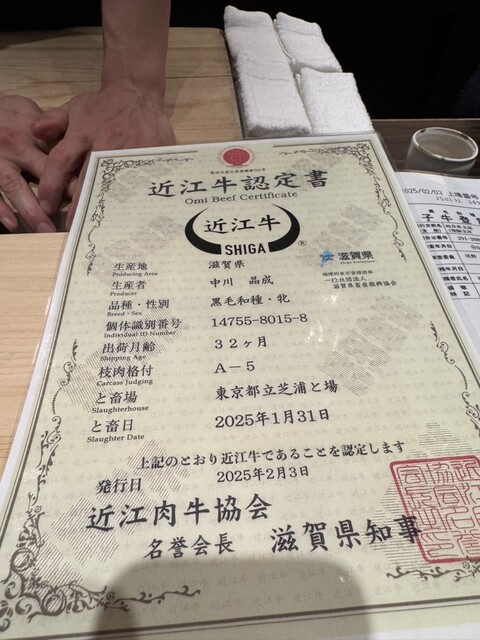 近江牛認定書
Omi Beef Certificate
近江牛
SHIGA ®
滋賀県
生産地 滋賀県
Producing Area
生産者 中川 晶成
Producer
品種・性別 黒毛和種・牝
Breed・Sex
個体識別番号 14755-8015-8
Individual ID Number
出荷月齢 32ヶ月
Shipping Age
枝肉格付 A-5
Carcass Judging
と畜場 東京都立芝浦と場
Slaughterhouse
と畜日 2025年1月31日
Slaughter Date
一般社団法人
滋賀県畜産振興協会
上記のとおり近江牛であることを認定します
発行日 2025年2月3日
近江肉牛協会
名誉会長 滋賀県知事
2025/02/03 上場番号
子牛登